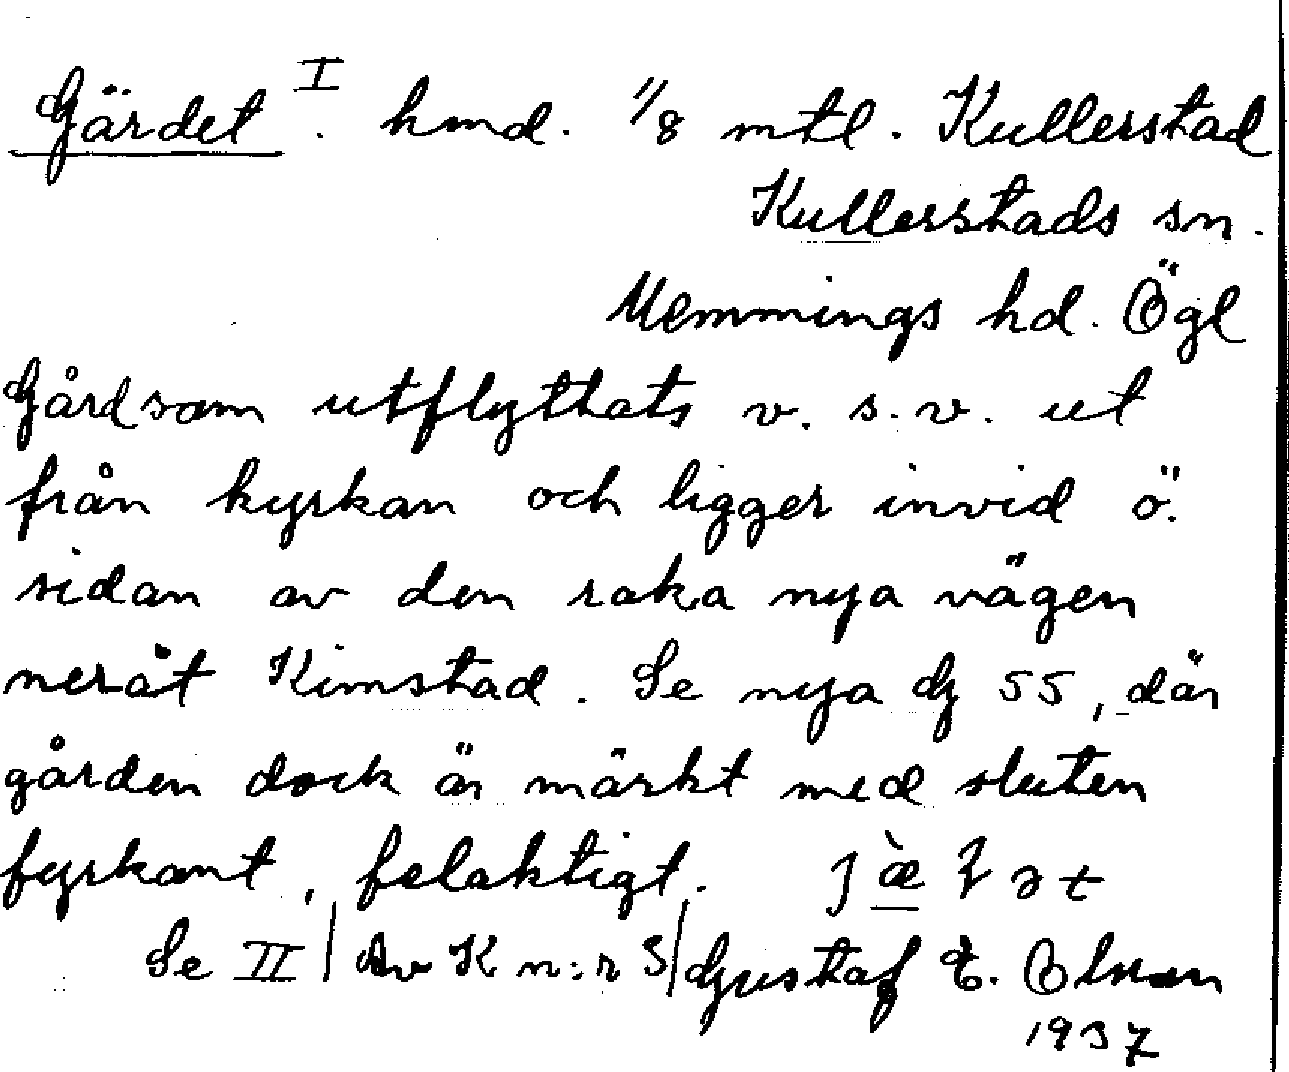 Gärdet I. hmd. 1/8 mtl. Kullerstad
Kullerstads sn.
Memmings hd. Ögl
Gård som utflyttats v. s. v. ut
från kyrkan och ligger invid ö.
sidan av den raka nya vägen
neråt Kimstad. Se nya dg 55, där
gården dock är märkt med sluten
fyrkant, felaktigt.
Se II / Av K n:r 3/ Gustaf E. Olsson
1937